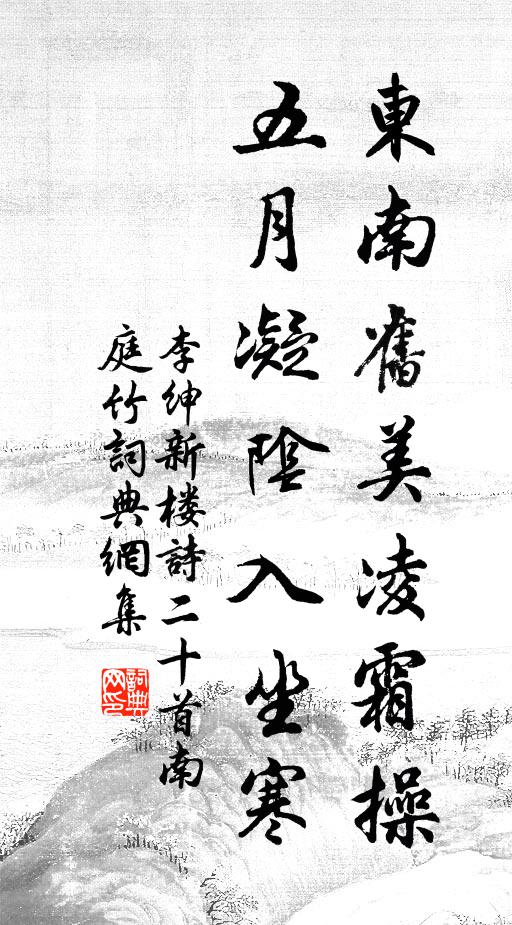 東南舊美凌霜操
五月凝陰入坐寒
李紳新楼詩二十首南
庭竹詞典網集
詞典网印